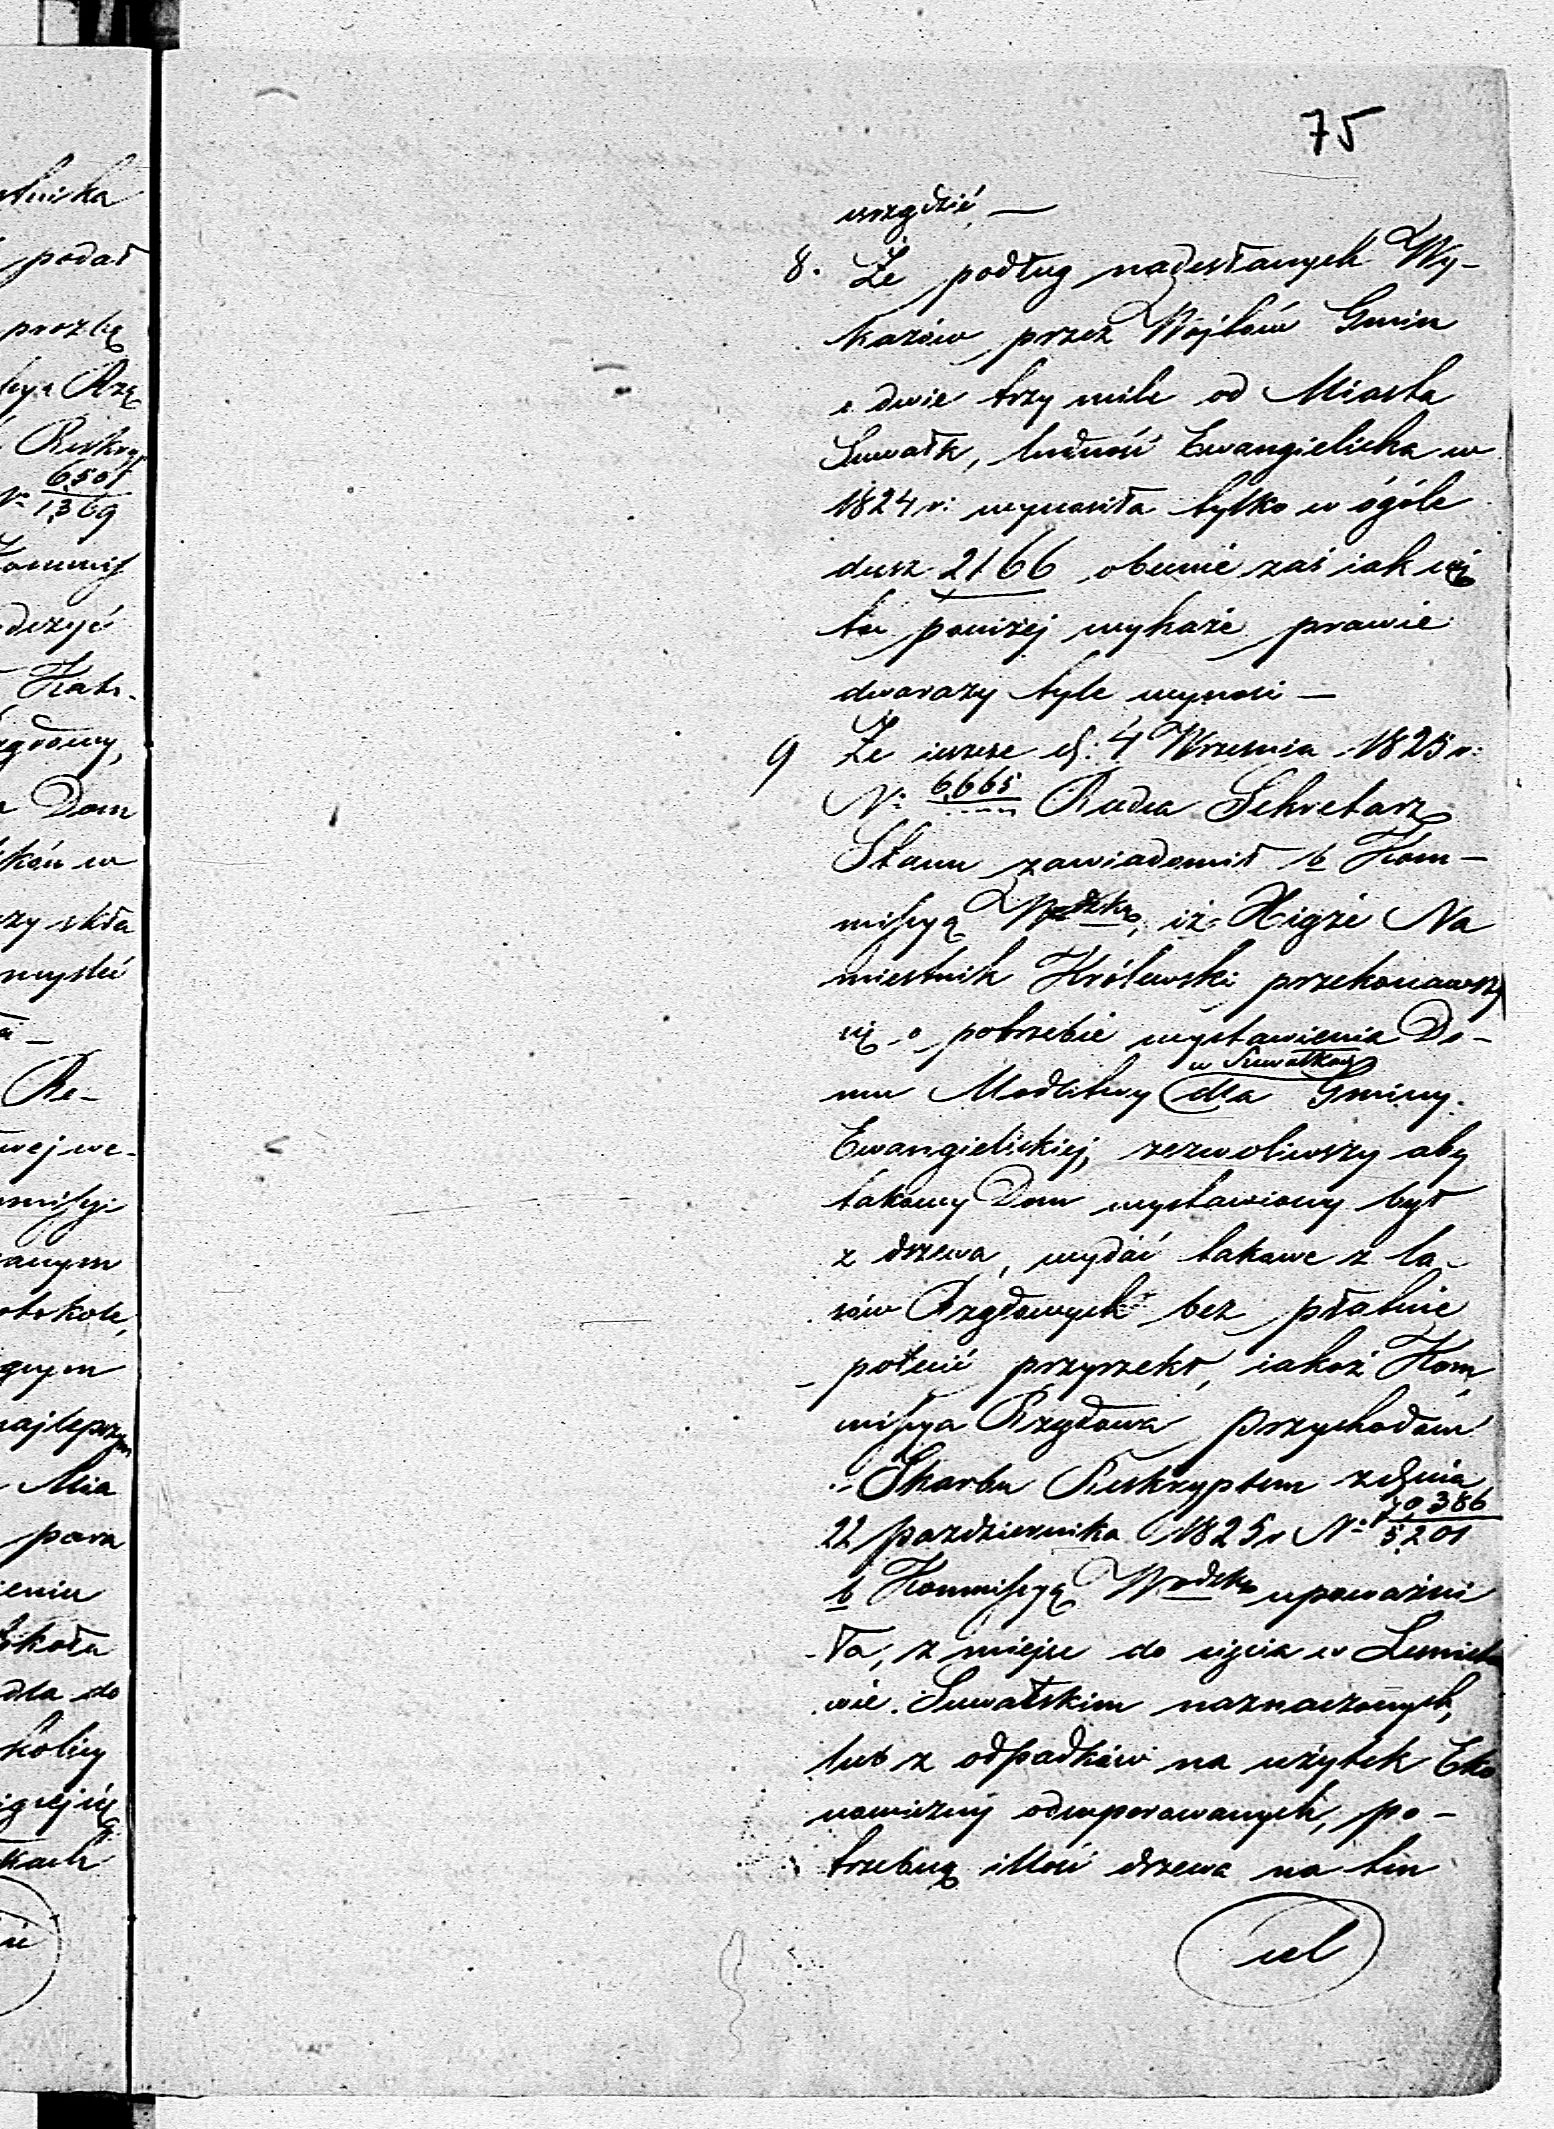 75
urządzić —
8. Że podług nadesłanych Wy-
kazów przez Wójtów Gmin
o dwie trzy mile od Miasta
Suwałk, ludność Ewangielicka w
1824 r: wynosiła tylko w ógóle
dusz 2166 obecnie zaś iak się
tu poniżej wykaże prawie
dwarazy tyle wynosi —
9 Że ieszcze d: 4 Wrzesnia 1825 r:
N: 6665 Radca Sekretarz
Stanu zawiadomił b Kom-
missyą Wdzką, iż Xiąże Na
miestnik Królewski przekonawszy
się o potrzebie wystawienia Do-
w Suwałkach
mu Modlitwy dla Gminy
Ewangielickiej, zezwoliwszy aby
takowy Dom wystawiony był
z drzewa, wydać takowe z la-
sów Rządowych bez płatnie
polecić przyrzekł, iakoż Kom
missya Rządowa Przychodów
i Skarbu Reskryptem z dnia
22 pazdziernika 1825 r N: 70,386
5,201
b Kommissyą Wodzką upoważni
ła, z miejsc do cięcia w Lesnict
wie Suwałskim naznaczonych,
lub z odpadków na użytek Eko
nomiczny odseperowanych, po-
trzebną illość drzewa na ten
cel
tnika
podał
prozbę
Rzą
Reskryp
6501
N: 1369
Kommis
Dom
ków w
zy skła
Re-
missyi
anym
najlepszym
Mia
para
ieniu
Szkoła
dla do
kach